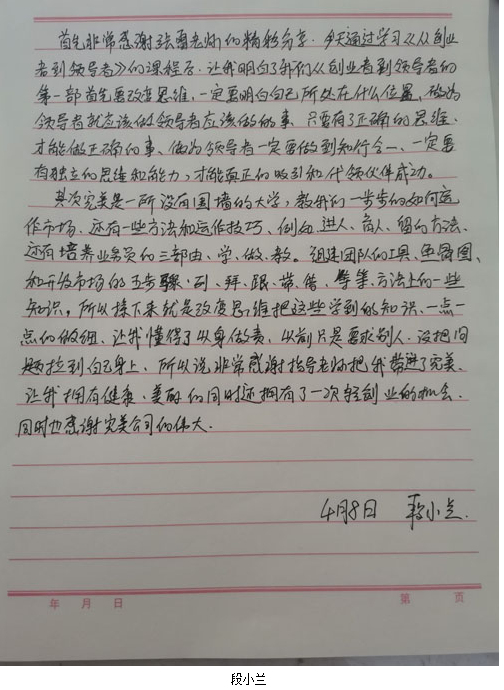 首先非常感谢张惠老师的精彩分享.今天通过学习《从创业
者到领导者》的课程后.让我明白了我们从创业者到领导者的
第一部首先要改变思维,一定要明白自己所处在什么位置,做为
领导者就应该做领导者应该做的事、只要有了正确的思维.
才能做正确的事、做为领导者一定要做到知行合一、一定要
有独立的思维和能力,才能真正的吸引和代领伙伴成功。
其次完美是一所没有围墙的大学,教我们一步步的如何运
作市场、还有一些方法和运作技巧、例如进人、育人、留的方法、
还有培养业务员的三部曲、学、做、教。组建团队的工具、
和开发市场的五步骤·列、拜、跟、带、借、等等、方法上的一些
知识,所以接下来就是改变思维把这些学到的知识、一点一
点的做细、让我懂得了以身做责、以前只是要求别人.没把问
题拉到自己身上、所以说非常感谢指导老师把我带进了完美、
让我拥有健康、美丽们同时还拥有了一次轻创业的机会.
同时也感谢完美公司的伟大.
4月8日 段小兰.
年 月 日 第 页
段小兰